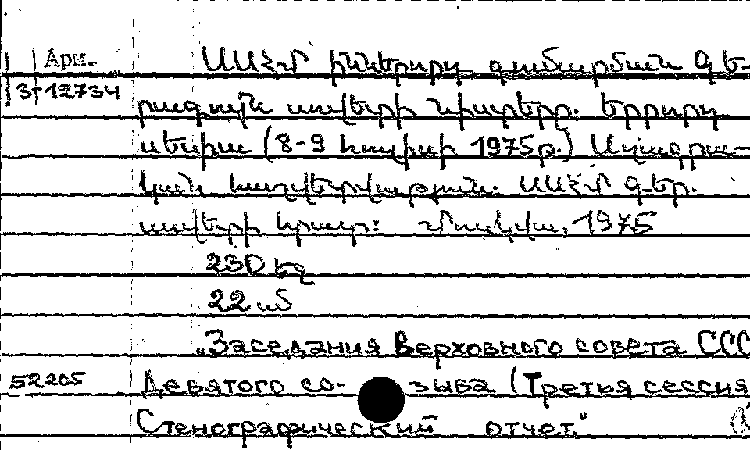 Арм. ՍՍՀՄ իններորդ գումարման Գե-
3-12734 րագույն սովետի նիստերը. երրորդ
սեսիա (8-9 հուլիսի 1975թ.) Սղագրա-
կան հաշվետվություն. ՍՍՀՄ Գեր.
սովետի հրատ: Մոսկվա, 1975
230 էջ
22 սմ
„Заседания Верховного совета ССС
52205 Девятого со- зыва (Третья сессия
Стенографический отчет"